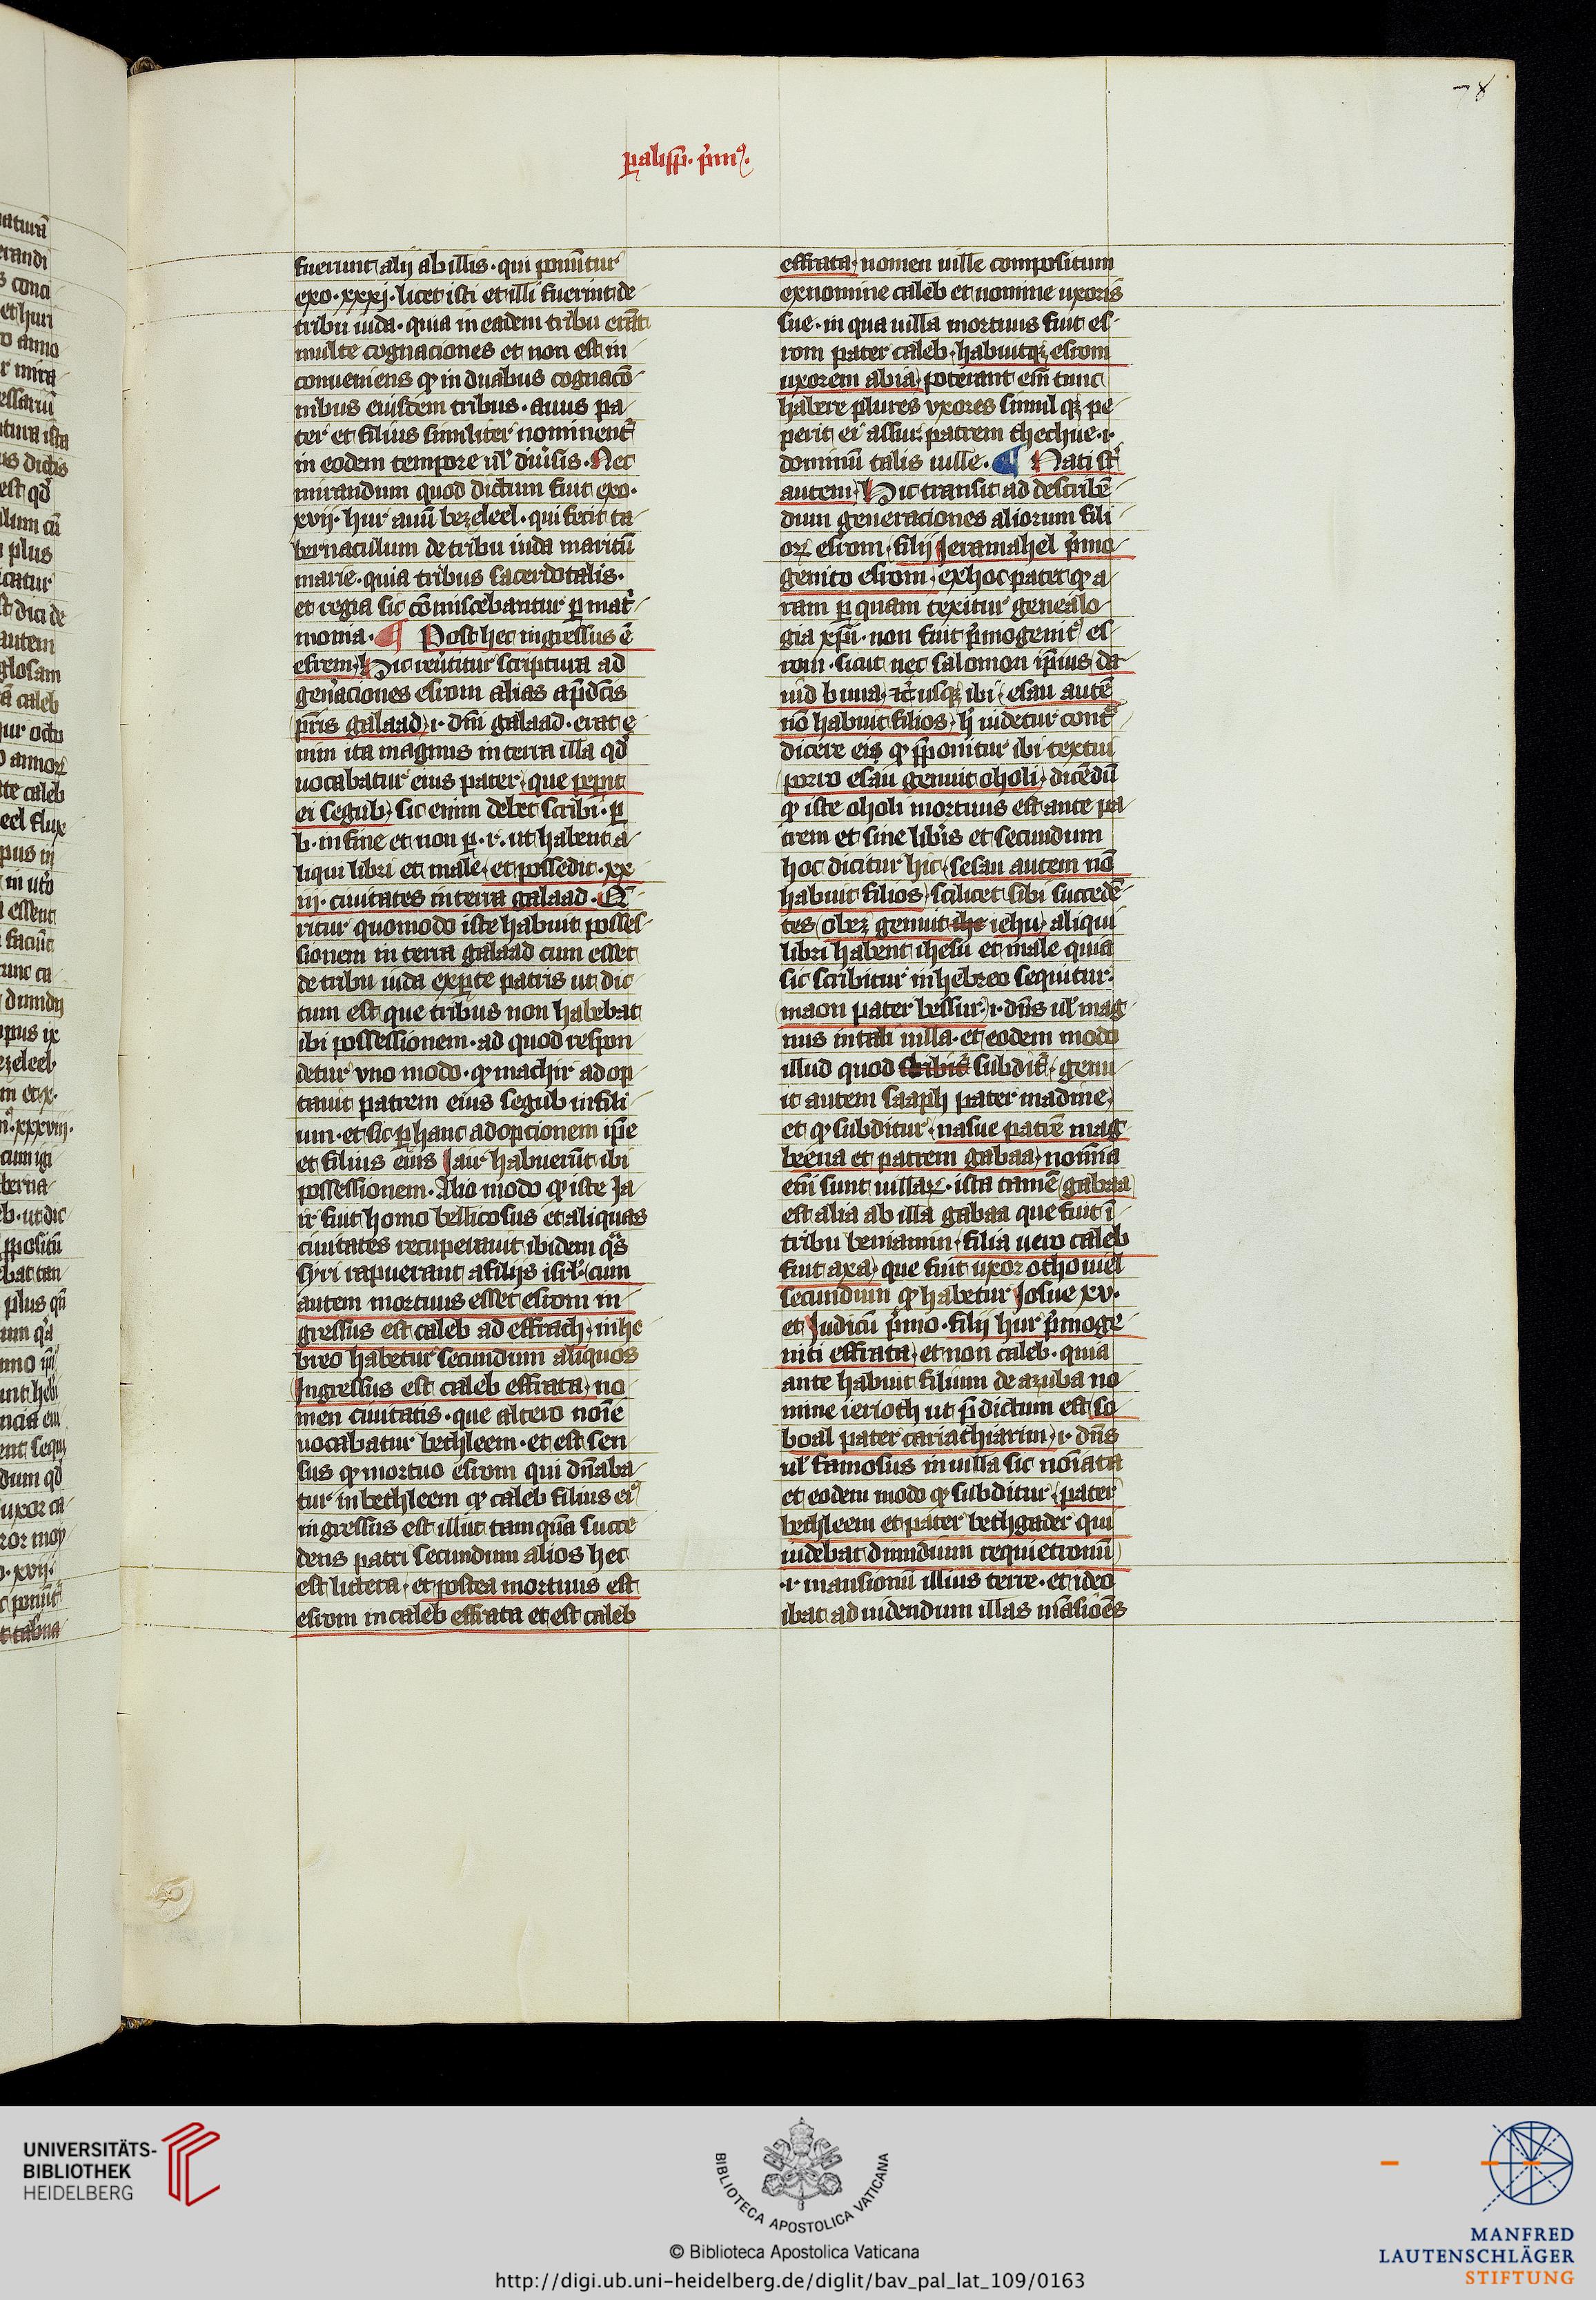 ꝑalipp̄. pͥmꝰ.
78
fuerunt alij ab illis · qui ponūtur
exo · xxxj · licet isti et illi fuerint de
tribu iuda · quia in eadem tribu erāt
multe cognaciones et non est in
conueniens ꝙ in duabus cognacō
nibus eiusdem tribus · auus pa
ter et filius similiter nominent᷑
in eodem tempore ul᷑ diu̾sis · Nec
mirandum quod dictum fuit exo ·
xvij · hur auū bezeleel · qui fecit ta
bernaculum de tribu iuda maritū
marie · quia tribus sacerdotalis ·
et regia sic cōmiscebantur ꝑ mat̾
monia · ¶ Post hec ingressus ē
esrem · Hic reūtitur scriptura ad
gen̾aciones esrom alias a p̄dc̄is
pr̄is galaad · i · dn̄i galaad · erat e
nim ita magnus in terra illa qd̾
uocabatur eius pater · que pepit
ei segub · sic enim debet scribi · ꝑ
b · in fine et non ꝑ · r · ut habent a
liqui libri et male · et possedit · xx
iij · ciuitates in terra galaad · Q̄
ritur quomodo iste habuit posses
sionem in terra galaad cum esset
de tribu iuda ex ꝑte patris ut dic
tum est que tribus non habebat
ibi possessionem · ad quod respon
detur vno modo · ꝙ machir adop
tauit patrem eius segub in fili
um · et sic ꝑ hanc adopcionem ip̄e
et filius eius Jair habuerūt ibi
possessionem · Alio modo ꝙ iste Ja
ir fuit homo bellicosus et aliquas
ciuitates recuperauit ibidem qᷓs
syri rapuerant a filijs isrl᷑ · cum
autem mortuus esset esrom in
gressus est caleb ad effrach · in he
breo habetur secundum aliquos
Ingressus est caleb effrata · no
men ciuitatis · que altero noīe
uocabatur bethleem · et est sen
sus ꝙ mortuo esrom qui dn̄aba
tur in bethleem ꝙ caleb filius eiꝰ
ingressus est illuc tamquā succe
dens patri secundum alios hec
est littera · et postea mortuus est
esrom in caleb effrata et est caleb
effrata · nomen uille compositum
ex nomine caleb et nomine uxoris
sue · in qua uilla mortuus fuit es
rom pater caleb · habuitqꝫ esrom
uxorem abia · poterant em̄ tunc
habere plures vxores simul qꝫ pe
perit ei assur patrem thechue · i ·
dominū talis uille · ¶ Nati st̄
autem · Hic transit ad describē
dum generaciones aliorum fili
oꝝ esrom · filij Jeramahel pͥmo
genito esrom · ex hoc patet ꝙ a
ram ꝑ quam texitur genealo
gia xp̄i · non fuit pͥmogenitꝰ es
rom · sicut nec salomon ip̄ius da
uid b una · ⁊c̄ usqꝫ ibi · esau autē
nō habuit filios · h᷑ uidetur contᷓ
dicere eiꝰ ꝙ p̄ponitur ibi textui
porro esau genuit oholi · dicēdū
ꝙ iste oholi mortuus est ante pa
trem et sine lib̾is et secundum
hoc dicitur hic · sesan autem nō
habuit filios · scilicet sibi succedē
tes · obez genuit ihc iehu · aliqui
libri habent ihesu et male quia
sic scribitur in hebreo sequitur ·
maon pater bessur · i · dn̄s ul᷑ mag
nus in tali uilla · et eodem modo
illud quod subdit᷑ · genu
it autem saaph pater madine ·
et ꝙ subditur · nasue patrē mag
beena et patrem gabaa · nomīa
em̄ sunt uillaꝝ · ista tamē gabaa
est alia ab illa gabaa que fuit ī
tribu beniamin · filia uero caleb
fuit axa · que fuit uxor othoniel
secundum ꝙ habetur Josue xv ·
et Judicū pͥmo · filij hur pͥmoge
niti effrata · et non caleb · quia
ante habuit filium de azuba no
mine ierioth ut p̄dictum est so
boal pater cariathiarim · i · dn̄s
ul᷑ famosus in uilla sic noīata
et eodem modo ꝙ subditur · pater
bethleem et pater bethgader qui
uidebat dimidium requietionū
· i · mansionū illius terre · et ideo
ibat ad uidendum illas māsiōes
UNIVERSITÄTS-
BIBLIOTHEK
HEIDELBERG
BIBLIOTECA APOSTOLICA VATICANA
© Biblioteca Apostolica Vaticana
http://digi.ub.uni-heidelberg.de/diglit/bav_pal_lat_109/0163
MANFRED
LAUTENSCHLÄGER
STIFTUNG